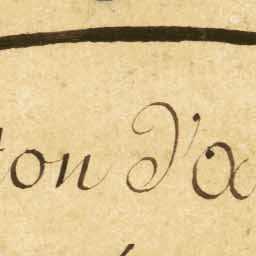 ton d'a